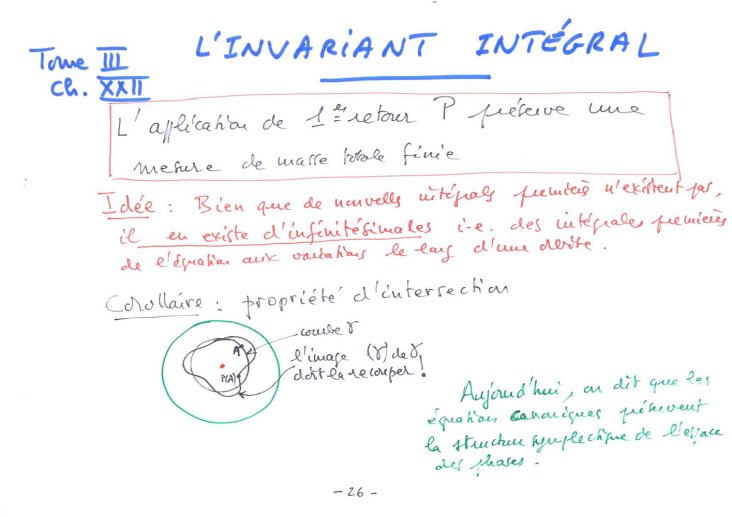 L'INVARIANT INTÉGRAL
Tome III
Ch. XXII
L'application de 1er retour P préserve une
mesure de masse totale finie
Idée : Bien que de nouvelles intégrales premières n'existent pas,
il en existe d'infinitésimales i.e. des intégrales premières
de l'équation aux variations le long d'une orbite.
Corollaire : propriété d'intersection
courbe γ
l'image (γ) de γ,
doit la recouper !
A
P(A)
Aujourd'hui, on dit que les
équations canoniques préservent
la structure symplectique de l'espace
des phases.
- 26 -